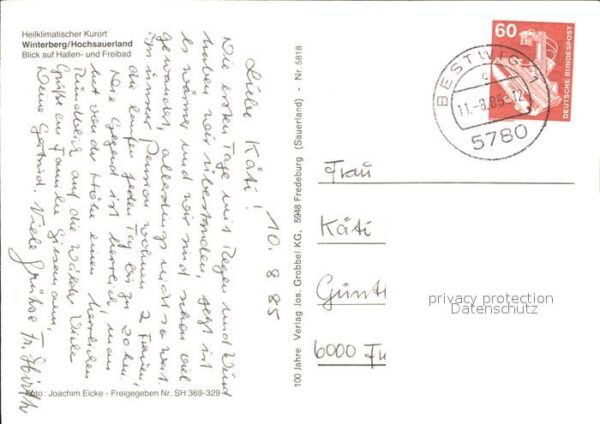 Heilklimatischer Kurort
Winterberg/Hochsauerland
Blick auf Hallen- und Freibad
10.8.85
Liebe Käti!
Die ersten Tage mit Regen und Wind
haben wir überstanden, jetzt ist
es wärmer und wir sind schon viel
gewandert, allerdings nicht so weit.
In unser Pension wohnen 2 Frauen,
die laufen jeden Tag bis zu 20 km.
Die Gegend ist herrlich, man
hat von der Höhe einen herrlichen
Rundblick auf die Wälder. Viele
Grüße an Familie
Deine Gertrud. Viele Grüße Fr.
Foto: Joachim Eicke - Freigegeben Nr. SH 369-329
100 Jahre Verlag Jos. Grobbel KG, 5948 Fredeburg (Sauerland) - Nr. 5818
60
DEUTSCHE BUNDESPOST
BESTWIG 1
c
11.-8.85-12
5780
Frau
Käti
Günt
6000
privacy protection
Datenschutz